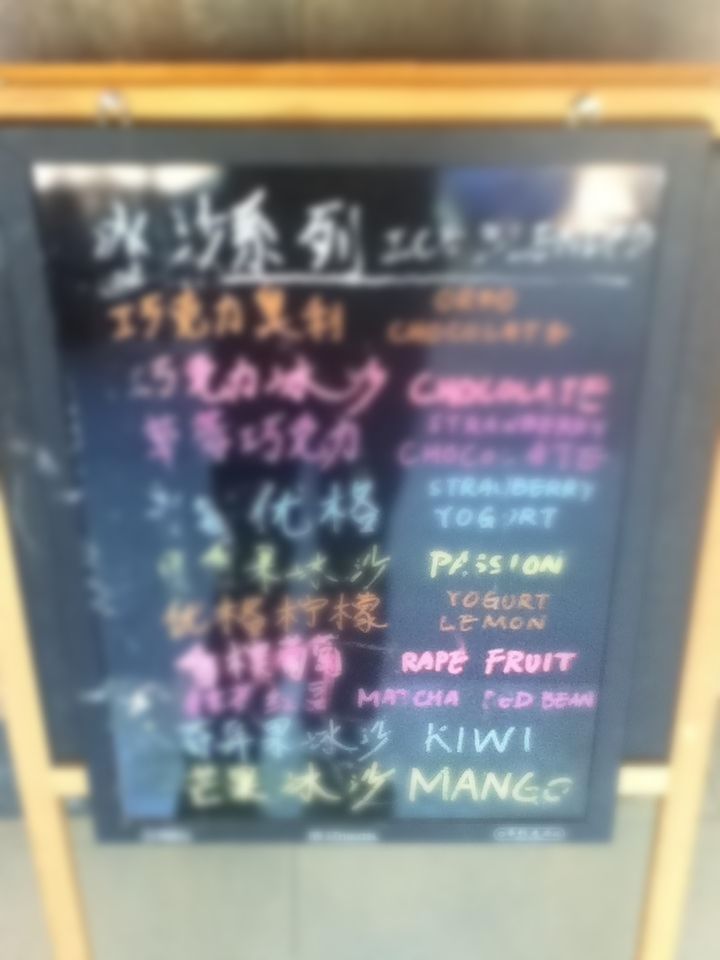 冰沙系列 ICE BLENDED
巧克力奥利 OREO
CHOCOLATE
巧克力冰沙 CHOCOLATE
草莓巧克力 STRAWBERRY
CHOCOLATE
优格 STRAWBERRY
YOGURT
果冰沙 PASSION
优格柠檬 YOGURT
LEMON
RAPE FRUIT
MATCHA RED BEAN
百香果冰沙 KIWI
芒果冰沙 MANGO